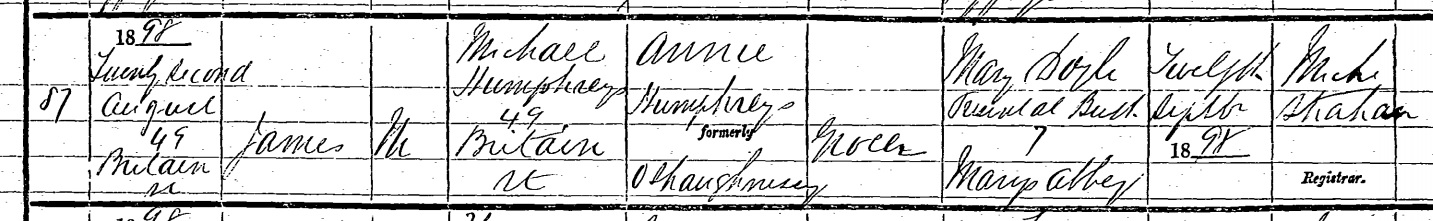 87
1898
Twenty Second
August
49
Britain
St
James
M
Michael
Humphreys
49
Britain
St
Annie
Humphreys
formerly
O Shaughnessy
Mary Doyle
Present at Birth
7
Marys Abbey
Twelfth
Septbr
1898
Registrar.